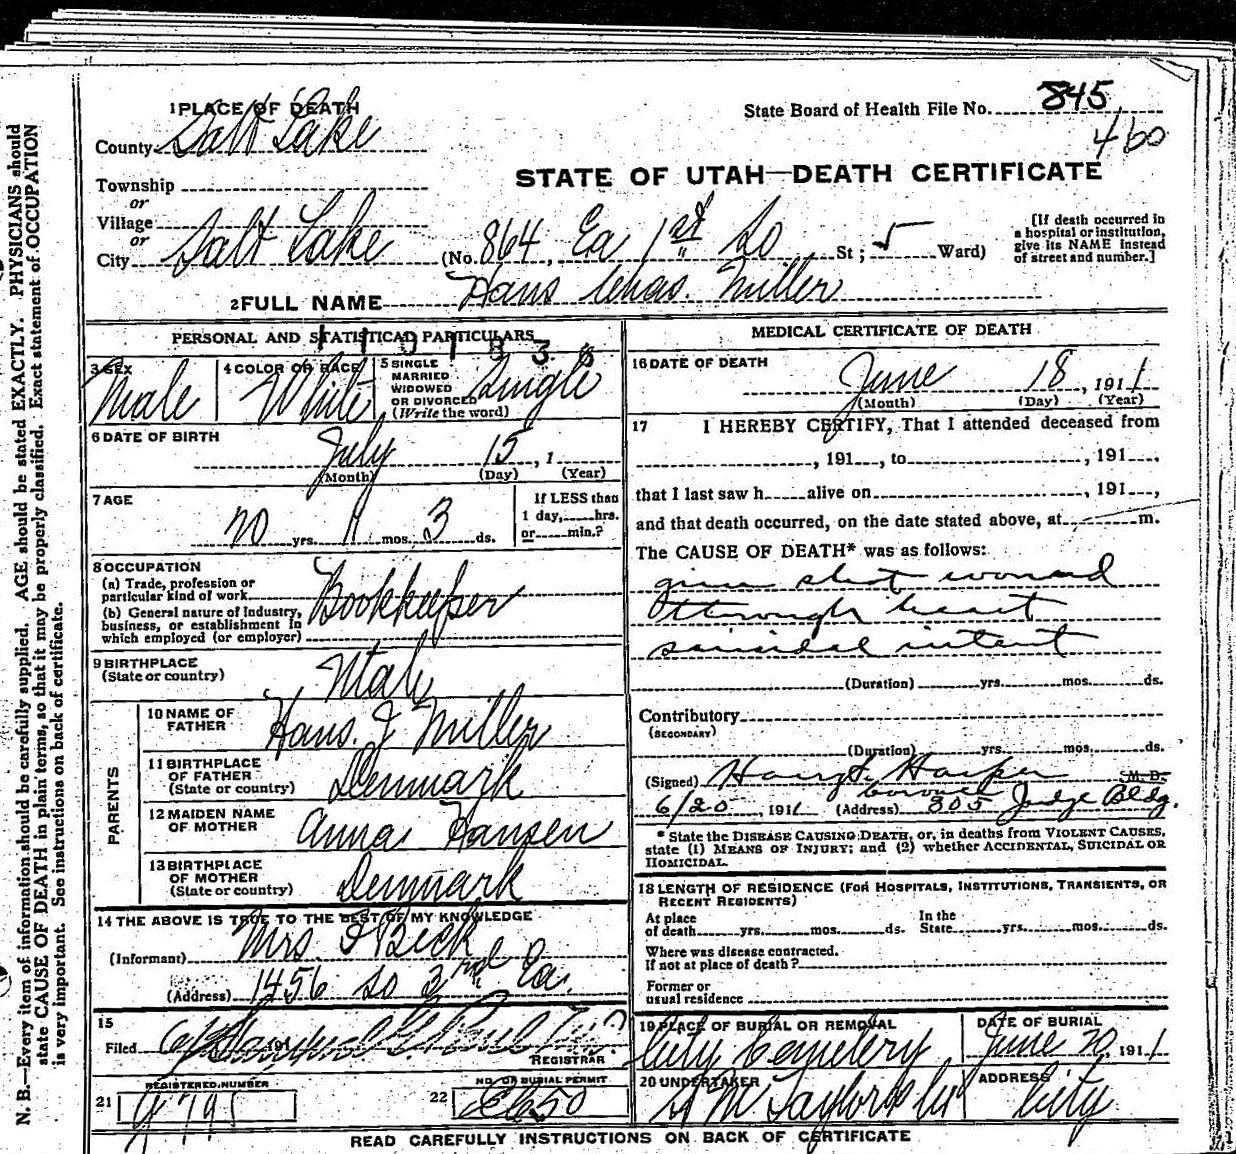 1 PLACE OF DEATH
State Board of Health File No. 845
460
County Salt Lake
STATE OF UTAH—DEATH CERTIFICATE
Township
or
Village
or
City Salt Lake (No. 864, Ea 1st So St; 5 Ward)
[If death occurred in
a hospital or institution,
give its NAME instead
of street and number.]
2 FULL NAME Hans Chas. Miller
PERSONAL AND STATISTICAL PARTICULARS
3 SEX Male
4 COLOR OR RACE White
5 SINGLE
MARRIED
WIDOWED
OR DIVORCED
(Write the word) Single
6 DATE OF BIRTH
July 15, 1
(Month) (Day) (Year)
7 AGE
20 yrs. 11 mos. 3 ds.
If LESS than
1 day, hrs.
or min.?
8 OCCUPATION
(a) Trade, profession or
particular kind of work Bookkeeper
(b) General nature of Industry,
business, or establishment in
which employed (or employer)
9 BIRTHPLACE
(State or country) Utah
PARENTS
10 NAME OF
FATHER Hans. J Miller
11 BIRTHPLACE
OF FATHER
(State or country) Denmark
12 MAIDEN NAME
OF MOTHER Anna Hansen
13 BIRTHPLACE
OF MOTHER
(State or country) Denmark
14 THE ABOVE IS TRUE TO THE BEST OF MY KNOWLEDGE
(Informant) Mrs. J Beck
(Address) 1456 So 2nd Ea.
15
Filed 191
REGISTRAR
REGISTERED NUMBER
21
NO. OF BURIAL PERMIT
22
MEDICAL CERTIFICATE OF DEATH
16 DATE OF DEATH
June 18, 1911
(Month) (Day) (Year)
17 I HEREBY CERTIFY, That I attended deceased from
, 191 , to , 191 ,
that I last saw h alive on , 191 ,
and that death occurred, on the date stated above, at m.
The CAUSE OF DEATH* was as follows:
gun shot wound
through heart
suicidal intent
(Duration) yrs. mos. ds.
Contributory
(SECONDARY)
(Duration) yrs. mos. ds.
(Signed) Harry S. Harper M. D.
coroner
6/20, 1911 (Address) 305 Judge Bldg.
* State the DISEASE CAUSING DEATH, or, in deaths from VIOLENT CAUSES,
state (1) MEANS OF INJURY; and (2) whether ACCIDENTAL, SUICIDAL OR
HOMICIDAL.
18 LENGTH OF RESIDENCE (FOR HOSPITALS, INSTITUTIONS, TRANSIENTS, OR
RECENT RESIDENTS)
At place
of death yrs. mos. ds.
In the
State yrs. mos. ds.
Where was disease contracted.
If not at place of death?
Former or
usual residence
19 PLACE OF BURIAL OR REMOVAL
City Cemetery
DATE OF BURIAL
June 20, 1911
20 UNDERTAKER
S M Taylor & Co
ADDRESS
City
READ CAREFULLY INSTRUCTIONS ON BACK OF CERTIFICATE
N. B.—Every item of information should be carefully supplied. AGE should be stated EXACTLY. PHYSICIANS should
state CAUSE OF DEATH in plain terms, so that it may be properly classified. Exact statement of OCCUPATION
is very important. See instructions on back of certificate.